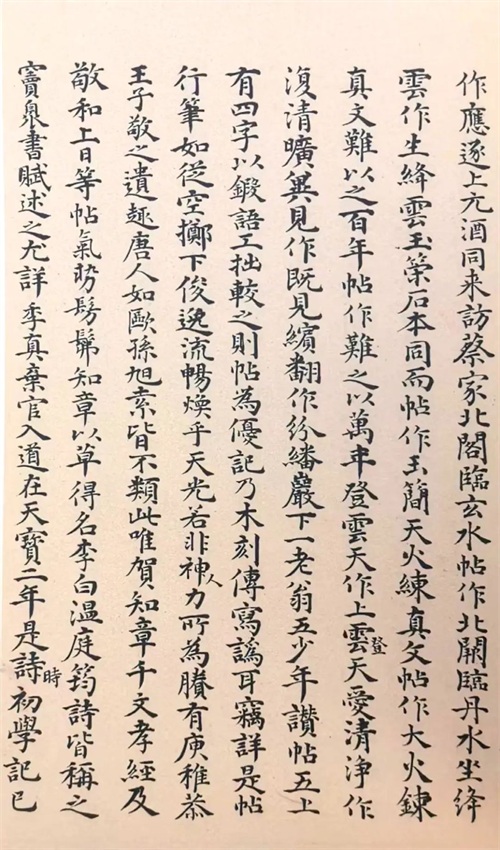 作應逐上元酒同来訪蔡家北閣臨玄水帖作北闕臨丹水坐絳
雲作生絳雲玉策石本同而帖作玉簡天火練真文帖作大火鍊
真文難以之百年帖作難之以萬年登雲天作上雲登天愛清浄作
復清曠異見作既見繽翻作紛繙巖下一老翁五少年讃帖五上
有四字以鍛語工拙較之則帖為優記乃木刻傳寫譌耳竊詳是帖
行筆如從空擲下俊逸流暢煥乎天光若非神人力所為賸有庾稚恭
王子敬之遺趣唐人如歐孫旭素皆不類此唯賀知章千文孝經及
敬和上日等帖氣勢髣髴知章以草得名李白温庭筠詩皆稱之
竇泉書賦述之尤詳季真棄官入道在天寶二年是詩時初學記已